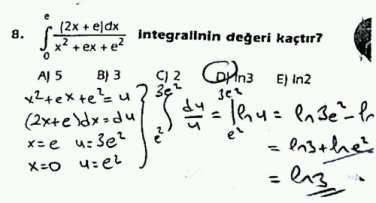 8. ∫₀ᵉ (2x + e)dx / x² + ex + e² integralinin değeri kaçtır?
A) 5 B) 3 C) 2 D) ln3 E) ln2
x²+ex+e²=u
(2x+e)dx=du
x=e u=3e²
x=0 u=e²
∫ₑ²³ᵉ² du/u = |ₑ²³ᵉ² ln u = ln3e² - ln
= ln3+lne²
= ln3